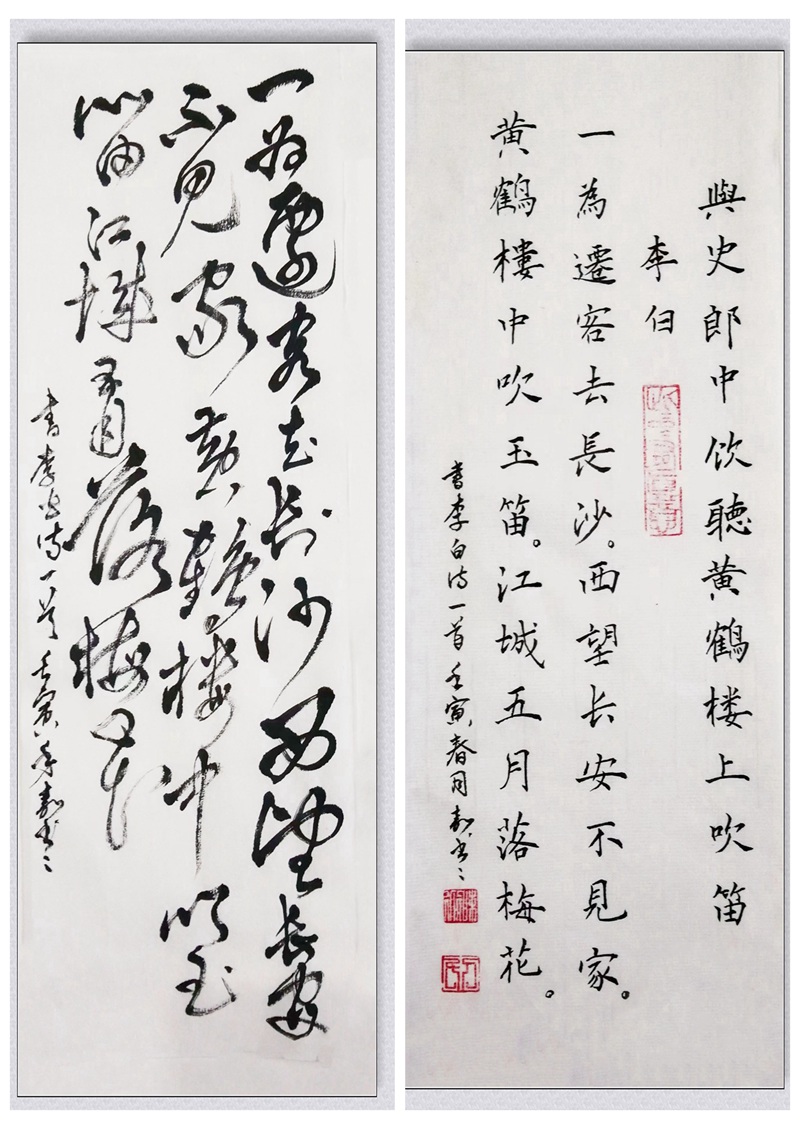 與史郎中饮聽黄鶴楼上吹笛
李白
一為遷客去長沙。西望长安不見家。
黄鶴樓中吹玉笛。江城五月落梅花。
書李白诗一首壬寅春月
一为遷客去长沙西望长安
不见家黄鶴楼中吹玉
笛江城五月落梅花
書李白诗一首壬寅年